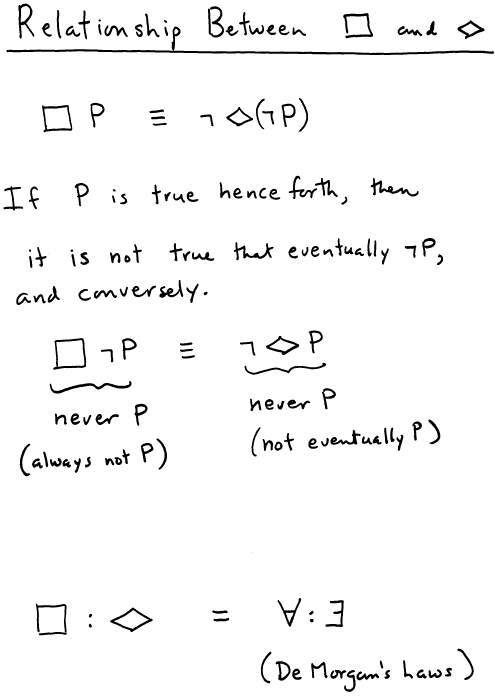 Relationship Between □ and ◇
□ P ≡ ¬ ◇(¬P)
If P is true hence forth, then
it is not true that eventually ¬P,
and conversely.
□ ¬P ≡ ¬ ◇ P
never P never P
(always not P) (not eventually P)
□ : ◇ = ∀ : ∃
(De Morgan's Laws)